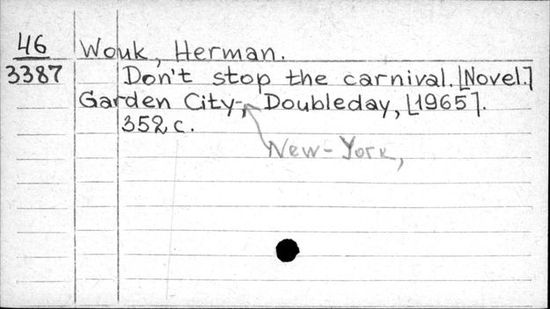 46 Wouk, Herman.
3387 Don't stop the carnival. [Novel.]
Garden City, Doubleday, [1965].
352 c.
New-York,